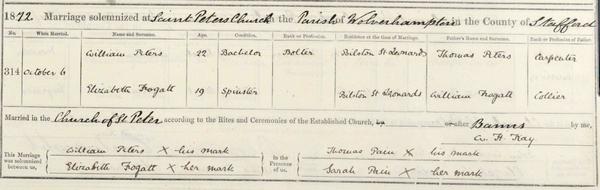 1872. Marriage solemnized at Saint Peters Church in the Parish of Wolverhampton in the County of Stafford
No. When Married. Name and Surname. Age. Condition. Rank or Profession. Residence at the time of Marriage. Father's Name and Surname. Rank or Profession of Father.
William Peters 22 Bachelor Bolter Bilston St Leonards Thomas Peters Carpenter
314 October 6
Elizabeth Fogatt 19 Spinster Bilston St Leonards William Fogatt Collier
Married in the Church of St Peter according to the Rites and Ceremonies of the Established Church, by or after Banns by me,
W. H. Kay
This Marriage was solemnized between us, William Peters X his mark In the Presence of us, Thomas Pain X his mark
Elizabeth Fogatt X her mark Sarah Pain X her mark